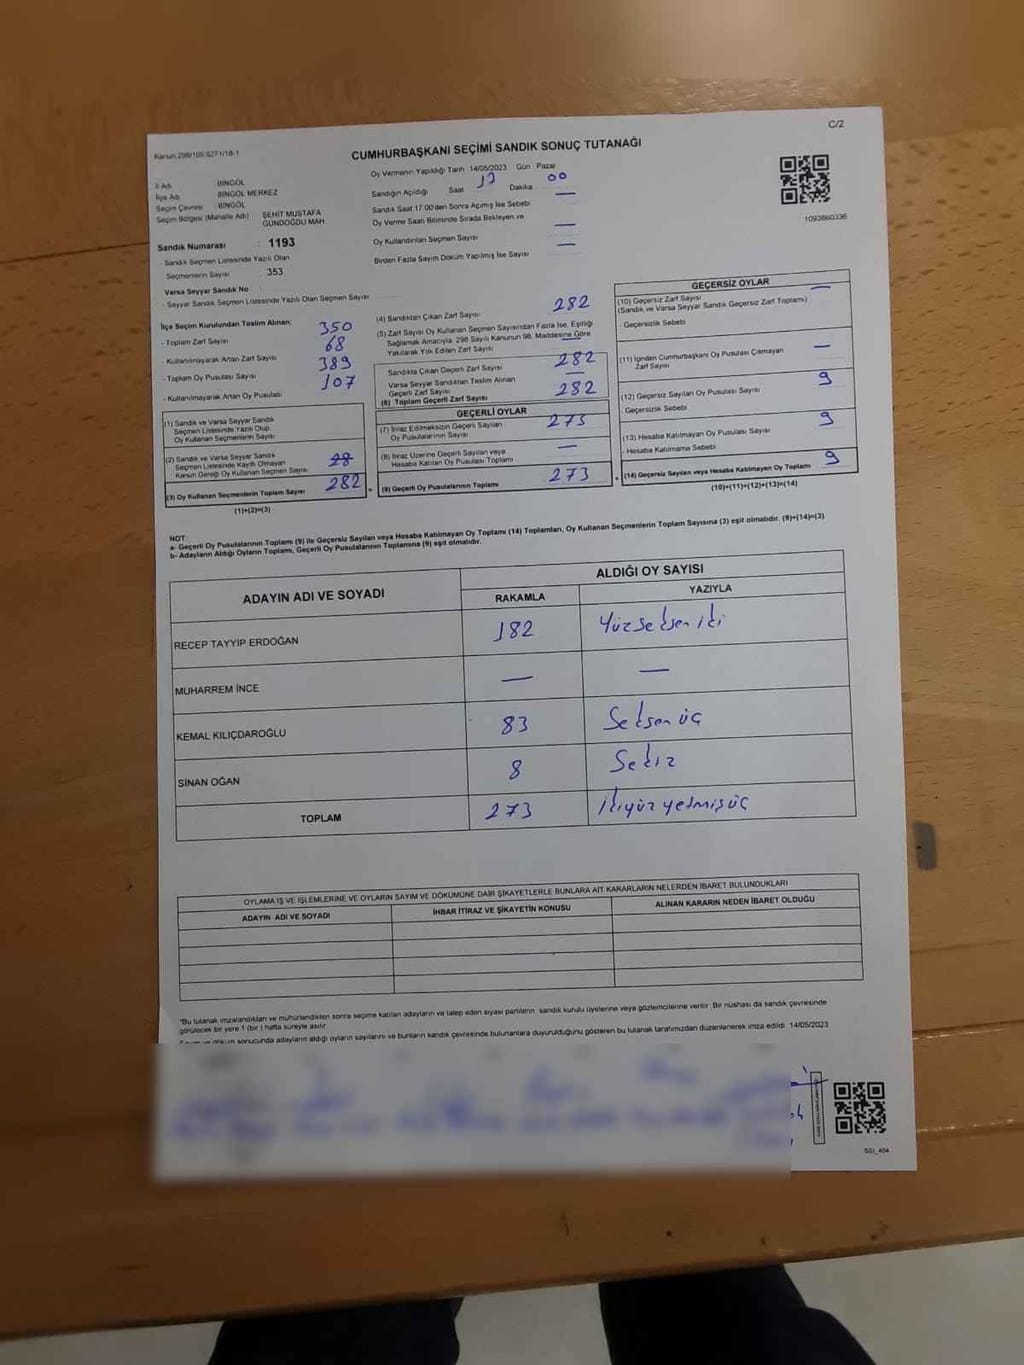 Kanun:298/105;6271/18-1
C/2
CUMHURBAŞKANI SEÇİMİ SANDIK SONUÇ TUTANAĞI
İl Adı BİNGÖL
İlçe Adı BİNGÖL MERKEZ
Seçim Çevresi BİNGÖL
Seçim Bölgesi (Mahalle Adı) ŞEHİT MUSTAFA
GÜNDOĞDU MAH.
Sandık Numarası : 1193
- Sandık Seçmen Listesinde Yazılı Olan
Seçmenlerin Sayısı : 353
Varsa Seyyar Sandık No
- Seyyar Sandık Seçmen Listesinde Yazılı Olan Seçmen Sayısı
Oy Vermenin Yapıldığı Tarih 14/05/2023 Gün Pazar
Sandığın Açıldığı Saat 17 Dakika 00
Sandık Saat 17.00'den Sonra Açılmış İse Sebebi —
Oy Verme Saati Bitiminde Sırada Bekleyen ve
Oy Kullandırılan Seçmen Sayısı —
Birden Fazla Sayım Döküm Yapılmış İse Sayısı —
1093860336
İlçe Seçim Kurulundan Teslim Alınan;
- Toplam Zarf Sayısı 350
- Kullanılmayarak Artan Zarf Sayısı 68
- Toplam Oy Pusulası Sayısı 389
- Kullanılmayarak Artan Oy Pusulası 107
(1) Sandık ve Varsa Seyyar Sandık
Seçmen Listesinde Yazılı Olup
Oy Kullanan Seçmenlerin Sayısı
(2) Sandık ve Varsa Seyyar Sandık
Seçmen Listesinde Kayıtlı Olmayan
Kanun Gereği Oy Kullanan Seçmen Sayısı 28
(3) Oy Kullanan Seçmenlerin Toplam Sayısı 282
(1)+(2)=(3)
(4) Sandıktan Çıkan Zarf Sayısı 282
(5) Zarf Sayısı Oy Kullanan Seçmen Sayısından Fazla İse, Eşitliği
Sağlamak Amacıyla, 298 Sayılı Kanunun 98. Maddesine Göre
Yakılarak Yok Edilen Zarf Sayısı —
Sandıkta Çıkan Geçerli Zarf Sayısı 282
Varsa Seyyar Sandıktan Teslim Alınan
Geçerli Zarf Sayısı —
(6) Toplam Geçerli Zarf Sayısı 282
GEÇERLİ OYLAR
(7) İtiraz Edilmeksizin Geçerli Sayılan
Oy Pusulalarının Sayısı 273
(8) İtiraz Üzerine Geçerli Sayılan veya
Hesaba Katılan Oy Pusulası Toplamı —
(9) Geçerli Oy Pusulalarının Toplamı 273
GEÇERSİZ OYLAR
(10) Geçersiz Zarf Sayısı —
(Sandık ve Varsa Seyyar Sandık Geçersiz Zarf Toplamı)
- Geçersizlik Sebebi
(11) İçinden Cumhurbaşkanı Oy Pusulası Çıkmayan
Zarf Sayısı —
(12) Geçersiz Sayılan Oy Pusulası Sayısı 9
- Geçersizlik Sebebi
(13) Hesaba Katılmayan Oy Pusulası Sayısı 9
- Hesaba Katılmama Sebebi
(14) Geçersiz Sayılan veya Hesaba Katılmayan Oy Toplamı 9
(10)+(11)+(12)+(13)=(14)
NOT:
a- Geçerli Oy Pusulalarının Toplamı (9) ile Geçersiz Sayılan veya Hesaba Katılmayan Oy Toplamı (14) Toplamları, Oy Kullanan Seçmenlerin Toplam Sayısına (3) eşit olmalıdır. (9)+(14)=(3)
b- Adayların Aldığı Oyların Toplamı, Geçerli Oy Pusulalarının Toplamına (9) eşit olmalıdır.
ADAYIN ADI VE SOYADI ALDIĞI OY SAYISI
RAKAMLA YAZIYLA
RECEP TAYYİP ERDOĞAN 182 Yüzseksen iki
MUHARREM İNCE — —
KEMAL KILIÇDAROĞLU 83 Seksen üç
SİNAN OĞAN 8 Sekiz
TOPLAM 273 ikiyüz yetmişüç
OYLAMA İŞ VE İŞLEMLERİNE VE OYLARIN SAYIM VE DÖKÜMÜNE DAİR ŞİKAYETLERLE BUNLARA AİT KARARLARIN NELERDEN İBARET BULUNDUKLARI
ADAYIN ADI VE SOYADI İHBAR İTİRAZ VE ŞİKAYETİN KONUSU ALINAN KARARIN NEDEN İBARET OLDUĞU
*Bu tutanak imzalandıktan ve mühürlendikten sonra seçime katılan adayların ve talep eden siyasi partilerin, sandık kurulu üyelerine veya gözlemcilerine verilir. Bir nüshası da sandık çevresinde
görülecek bir yere 1 (bir ) hafta süreyle asılır.
Sayım ve döküm sonucunda adayların aldığı oyların sayılarını ve bunların sandık çevresinde bulunanlara duyurulduğunu gösteren bu tutanak tarafımızdan düzenlenerek imza edildi. 14/05/2023